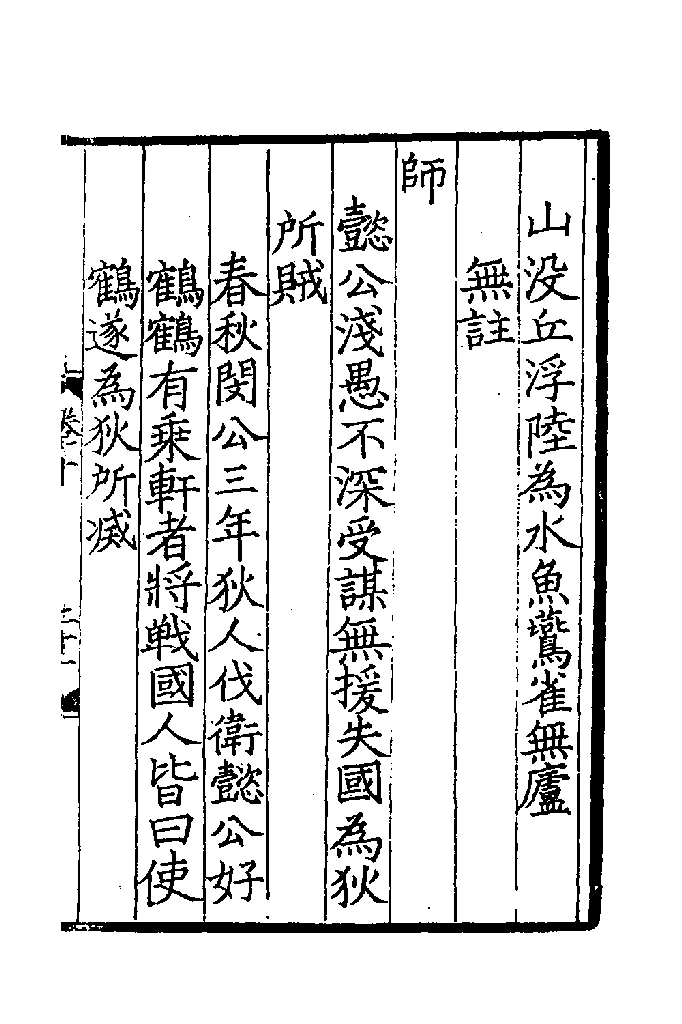 山没丘浮陸為水魚鷰雀無廬
無註
師
懿公淺愚不深受謀無援失國為狄
所賊
春秋閔公三年狄人伐衛懿公好
鶴鶴有乗軒者將戰國人皆曰使
鶴遂為狄所滅